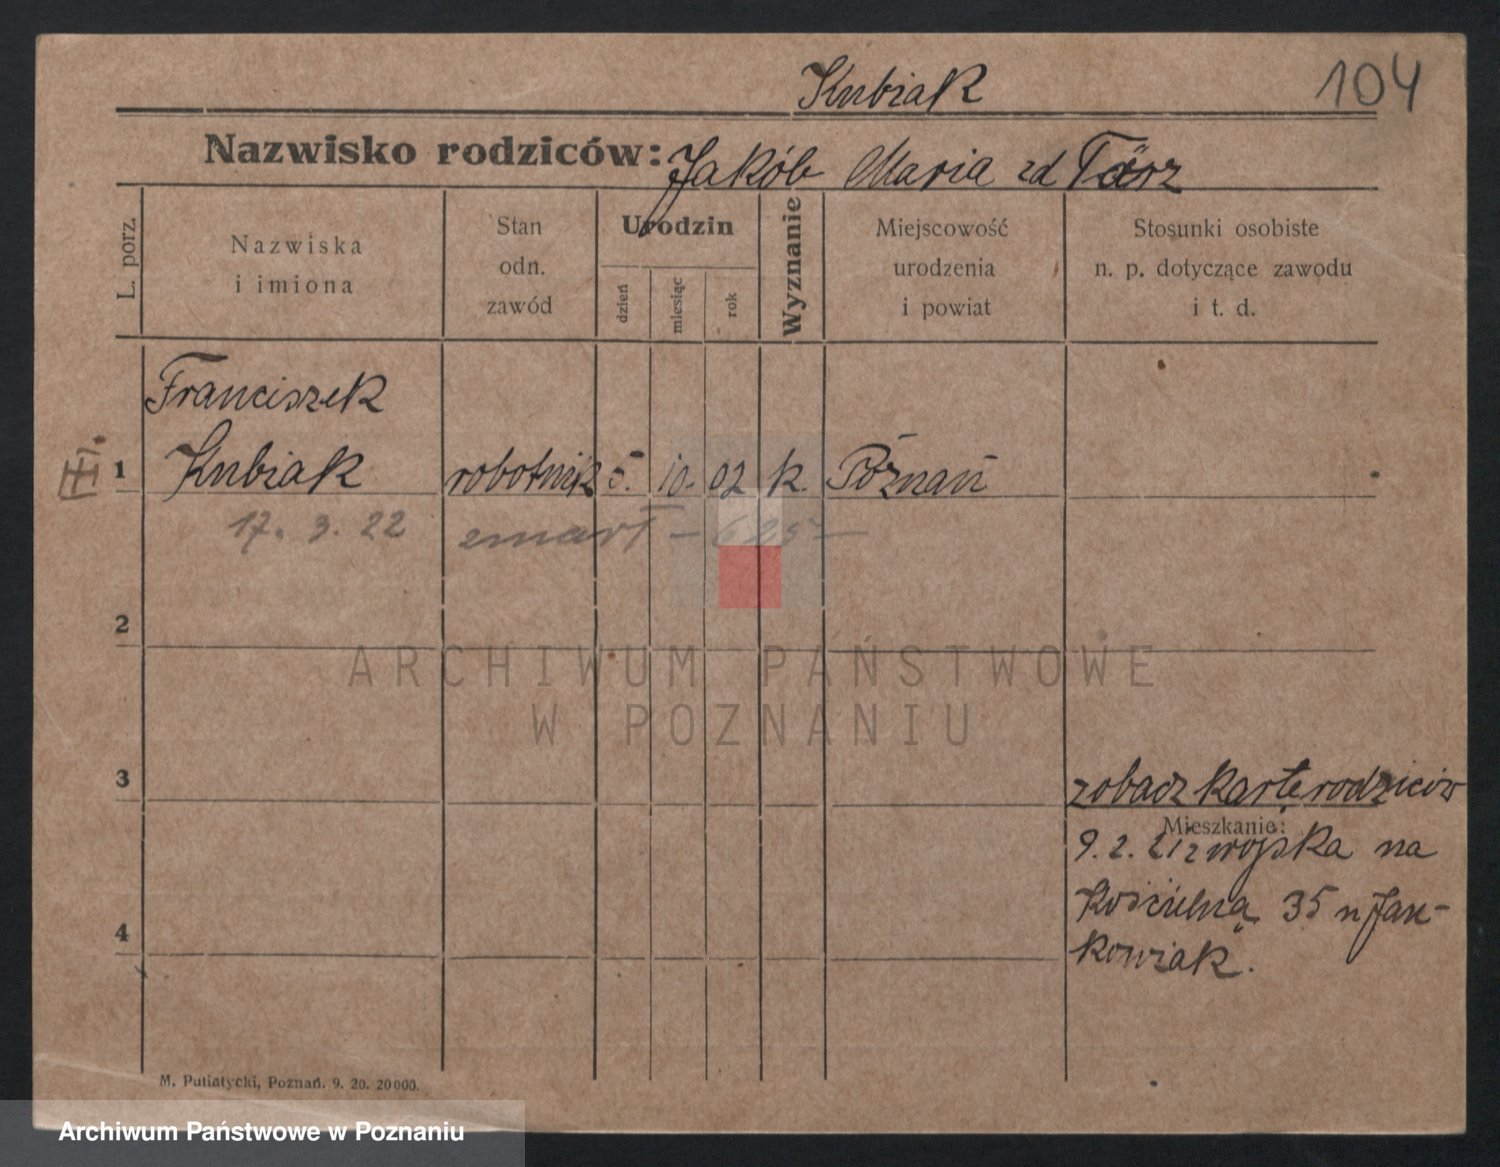 Kubiak
104
Nazwisko rodziców: Jakób Maria zd
L. porz.
Nazwiska
i imiona
Stan
odn.
zawód
Urodzin
dzień
miesiąc
rok
Wyznanie
Miejscowość
urodzenia
i powiat
Stosunki osobiste
n. p. dotyczące zawodu
i t. d.
Franciszek
III.
1 Kubiak robotnik 5. 10. 02 k. Poznań
17. 3. 22 zmarł – 625 –
2
ARCHIWUM PAŃSTWOWE
W POZNANIU
3
zobacz kartę rodziców
Mieszkanie:
9. 2. 21 z wojska na
Kościelną 35 u Jan-
kowiak.
4
M. Putiatycki, Poznań. 9. 20. 20000.
Archiwum Państwowe w Poznaniu